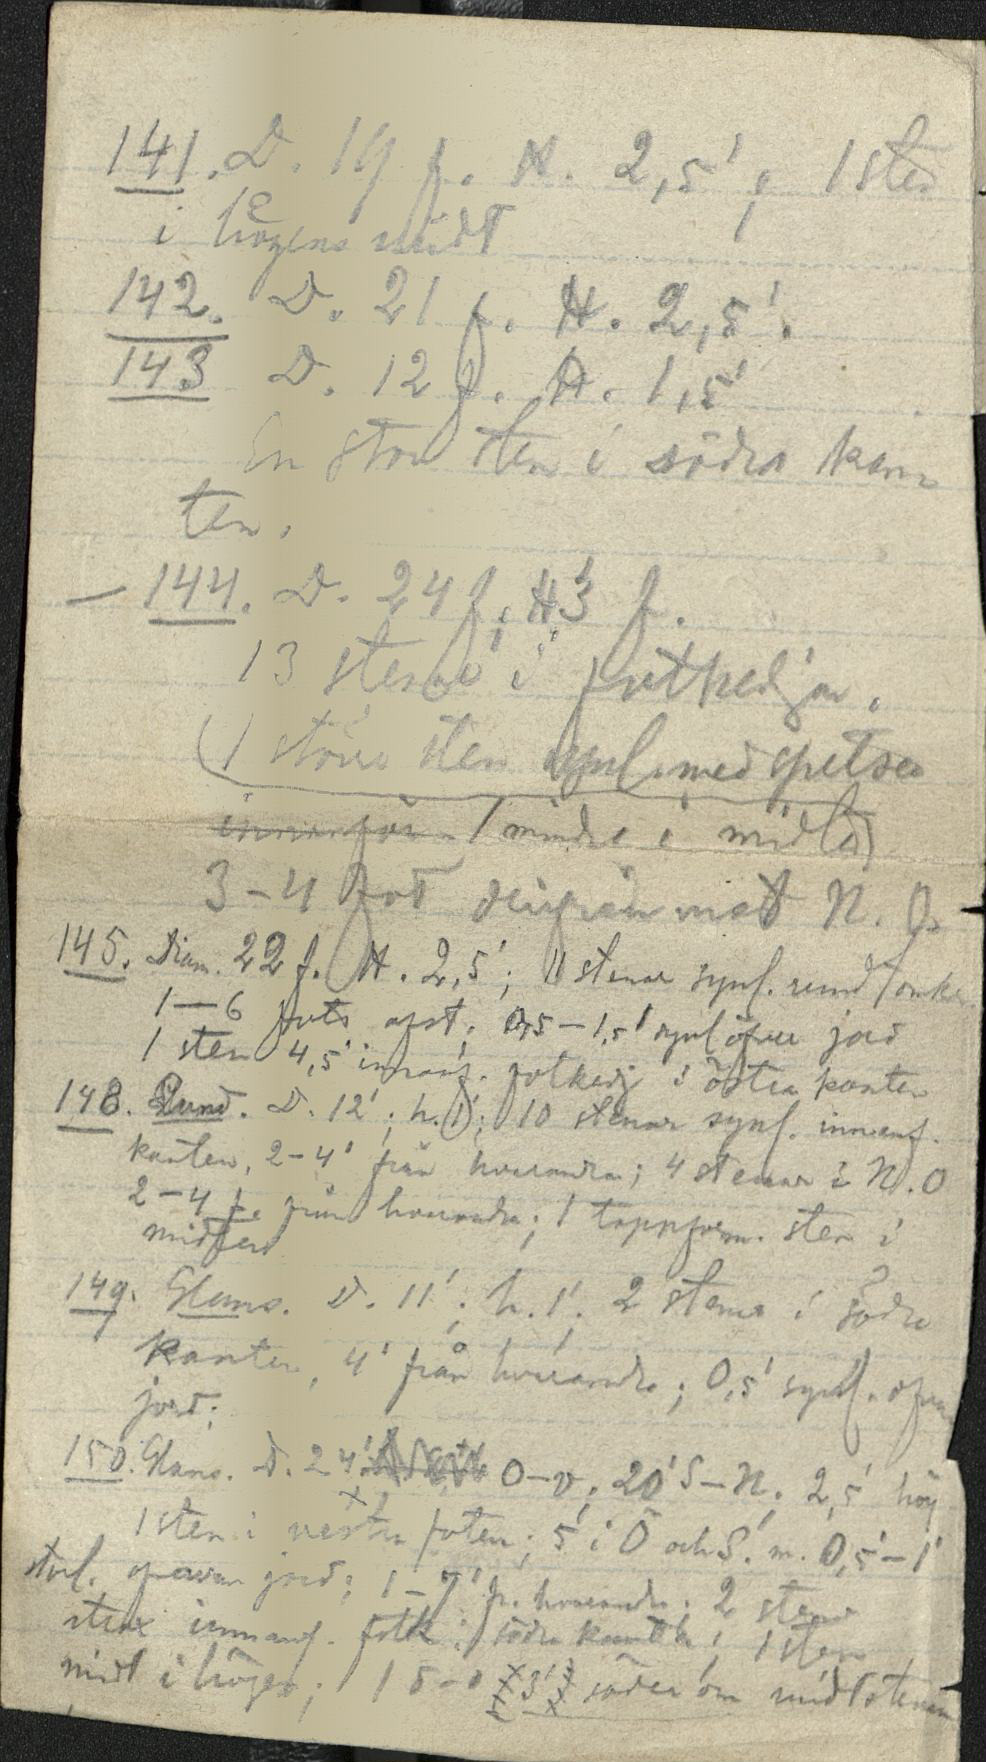 141. D. 19 f. H. 2,5'; 1 sten
i högens midt
142. D. 21 f. H. 2,5'.
143 D. 12 f. H. 1,5'
En stor sten i södra kan
ten.
— 144. D. 24 f; H 3 f.
13 stenar i fotkedja.
(1 större sten synl. med spetsen
innanför 1 mindre i midten)
3-4 fot
145. Diam. 22 f. H. 2,5'; 11 stenar synl. rundtomkr.
1—6 fots afst; 0,5—1,5' synl öfver jord
1 sten 4,5' innanf. fotkedj i östra kanten
148. Rund. D. 12'; h. 1'; 10 stenar synl. innanf.
kanten, 2-4' från hvarandra; 4 stenar i N.O
2-4 f. från hvarandra; 1 toppform. sten i
midten
149. D. 11'; h. 1'. 2 stenar i södra
kanten, 4' från hvarandra; 0,5' synl. ofvan
jord;
150. D. 24' O-V; 20' S-N. 2,5' hög
1 sten i vestra foten; 5 i Ö och S. m. 0,5'-1'
storl. ofvan jord; 1-7' fr. hvarandra; 2 stenar
strax innanf. fotk. i södra kanten; 1 sten
midt i högen; 1 3' söder om midtstenen